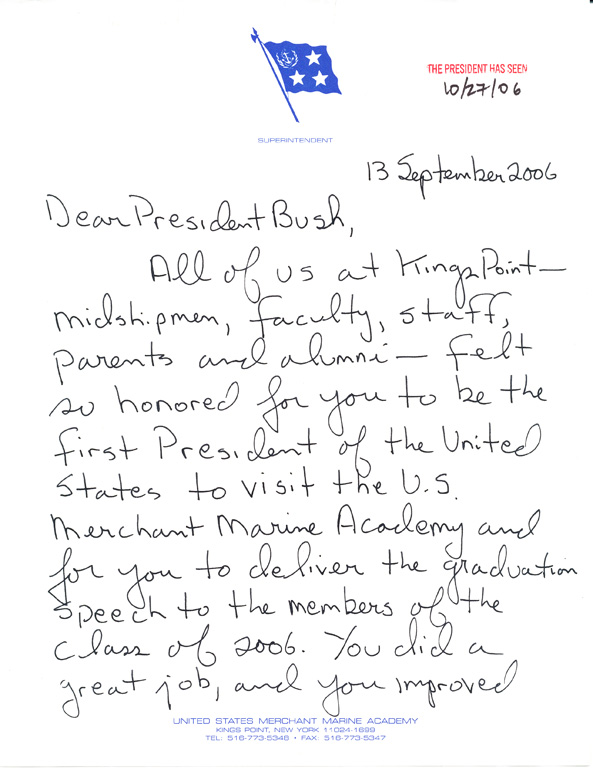 THE PRESIDENT HAS SEEN
10/27/06
SUPERINTENDENT
13 September 2006
Dear President Bush,
All of us at Kings Point—
midshipmen, faculty, staff,
parents and alumni — felt
so honored for you to be the
first President of the United
States to visit the U.S.
Merchant Marine Academy and
for you to deliver the graduation
speech to the members of the
class of 2006. You did a
great job, and you improved
UNITED STATES MERCHANT MARINE ACADEMY
KINGS POINT, NEW YORK 11024-1699
TEL: 516-773-5348 • FAX: 516-773-5347